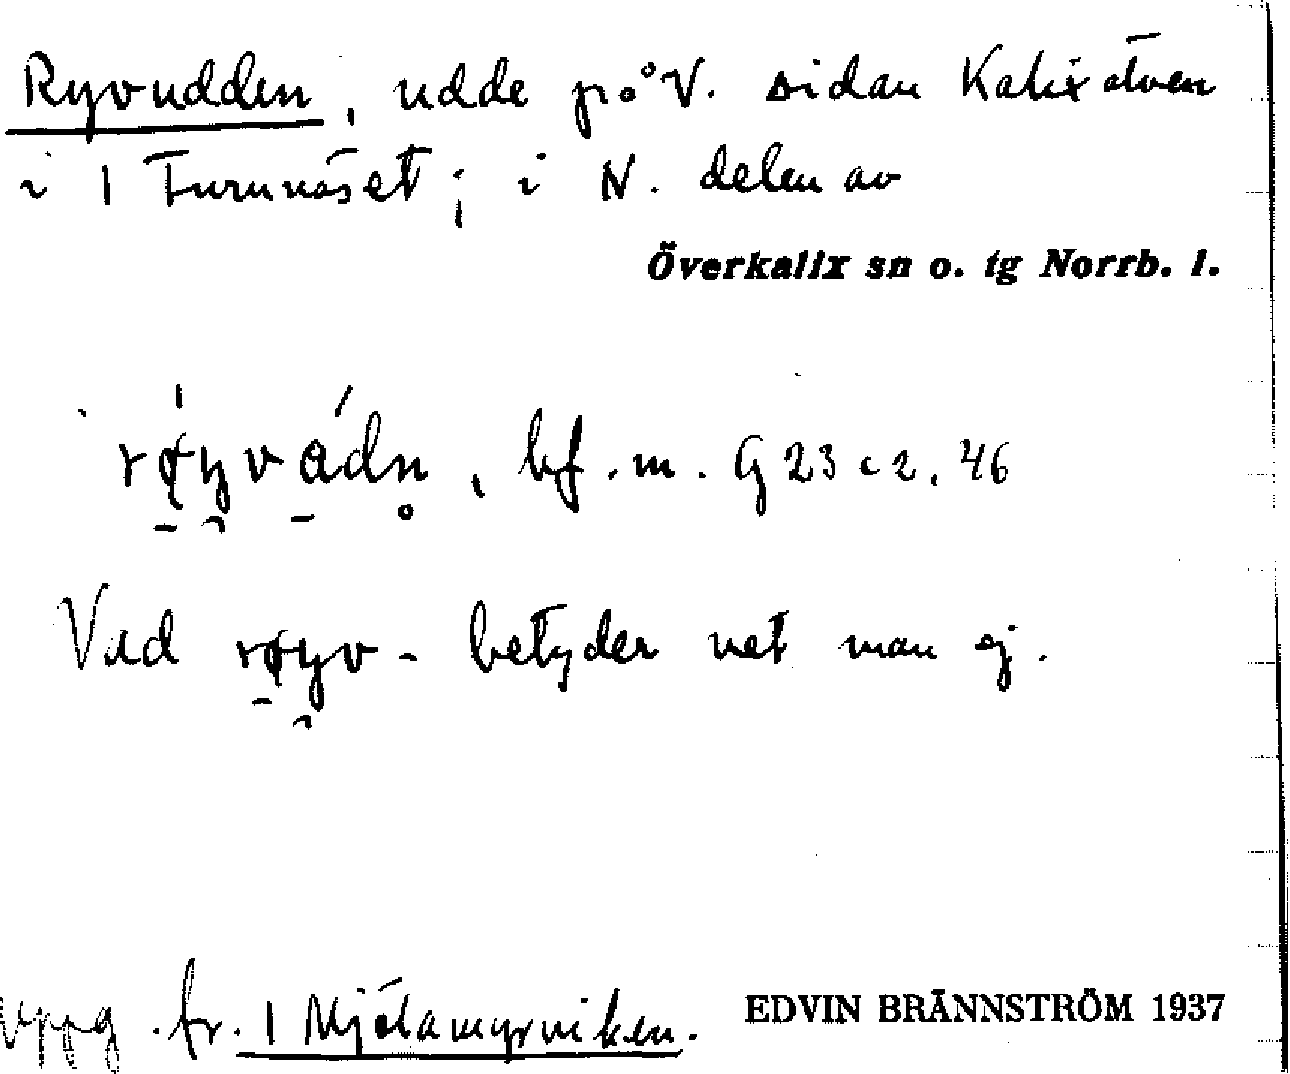 Ryvudden, udde på V. sidan Kalixälven
i 1 Furunäset; i N. delen av
Överkalix sn o. tg Norrb. l.
røyvádn, bf. m. G 23 c 2, 46
Vad røyv- betyder vet man ej.
Uppg. fr. 1 Mjölamyrviken.
EDVIN BRÄNNSTRÖM 1937